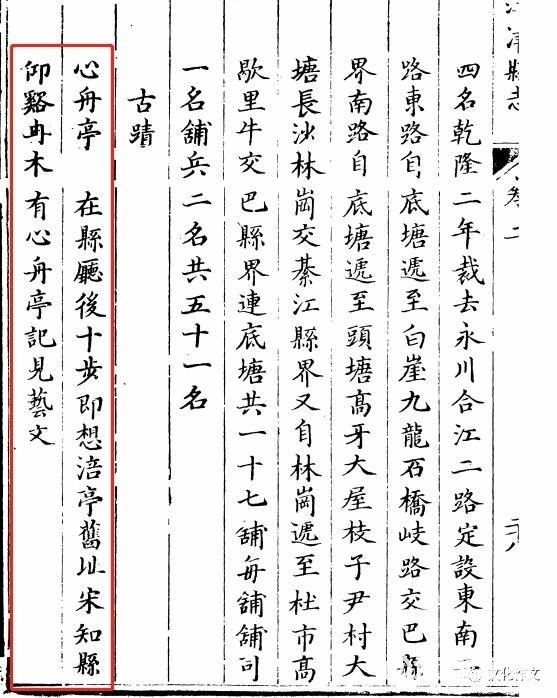 津縣志 卷二
四名乾隆二年裁去永川合江二路定設東南
路東路自底塘遞至白崖九龍石橋岐路交巴縣
界南路自底塘遞至頭塘高牙大屋枝子尹村大
塘長沙林崗交綦江縣界又自林崗遞至杜市高
歇里牛交巴縣界連底塘共一十七舖每舖舖司
一名舖兵二名共五十一名
古蹟
心舟亭 在縣廳後十步即想涪亭舊址宋知縣
仰谿冉木有心舟亭記見藝文